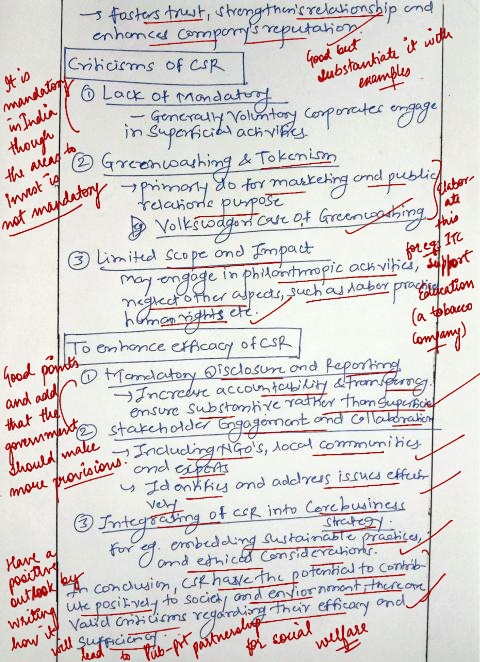 → fosters trust, strengthen's relationship and
enhances company's reputation.
Good but
substantiate it with
examples
Criticisms of CSR
① Lack of Mandatory
- Generally Voluntary corporates engage
in Superficial activities.
It is
mandatory
in India
though
the areas to
Invest is
not mandatory
② Greenwashing & Tokenism
→ primarily do for marketing and public
relations purpose
eg Volkswagon Case of Greenwashing
Elabor-
ate
this
for eg: ITC
support
Education
(a tobacco
company)
③ Limited Scope and Impact
may engage in philanthropic activities,
neglect other aspects, such as labor practice
human rights etc.
To enhance efficacy of CSR
① Mandatory Disclosure and Reporting
→ Increase accountability & transparency.
ensure substantive rather than superficial
Good points
and add
that the
government
should make
more provisions.
② Stakeholder Engagement and Collaboration
↳ Including NGO's, local communities
and experts
↳ Identifies and address issues effecti-
vely
③ Integrating of CSR into Core business
strategy.
For eg. embedding sustainable practices,
and ethical considerations.
In conclusion, CSR have the potential to contrib-
ute positively to society and enviornment, there are
valid criticisms regarding their efficacy and
sufficiency.
Have a
positive
outlook by
writing
how it
will lead to Pub-pvt partnership for social welfare